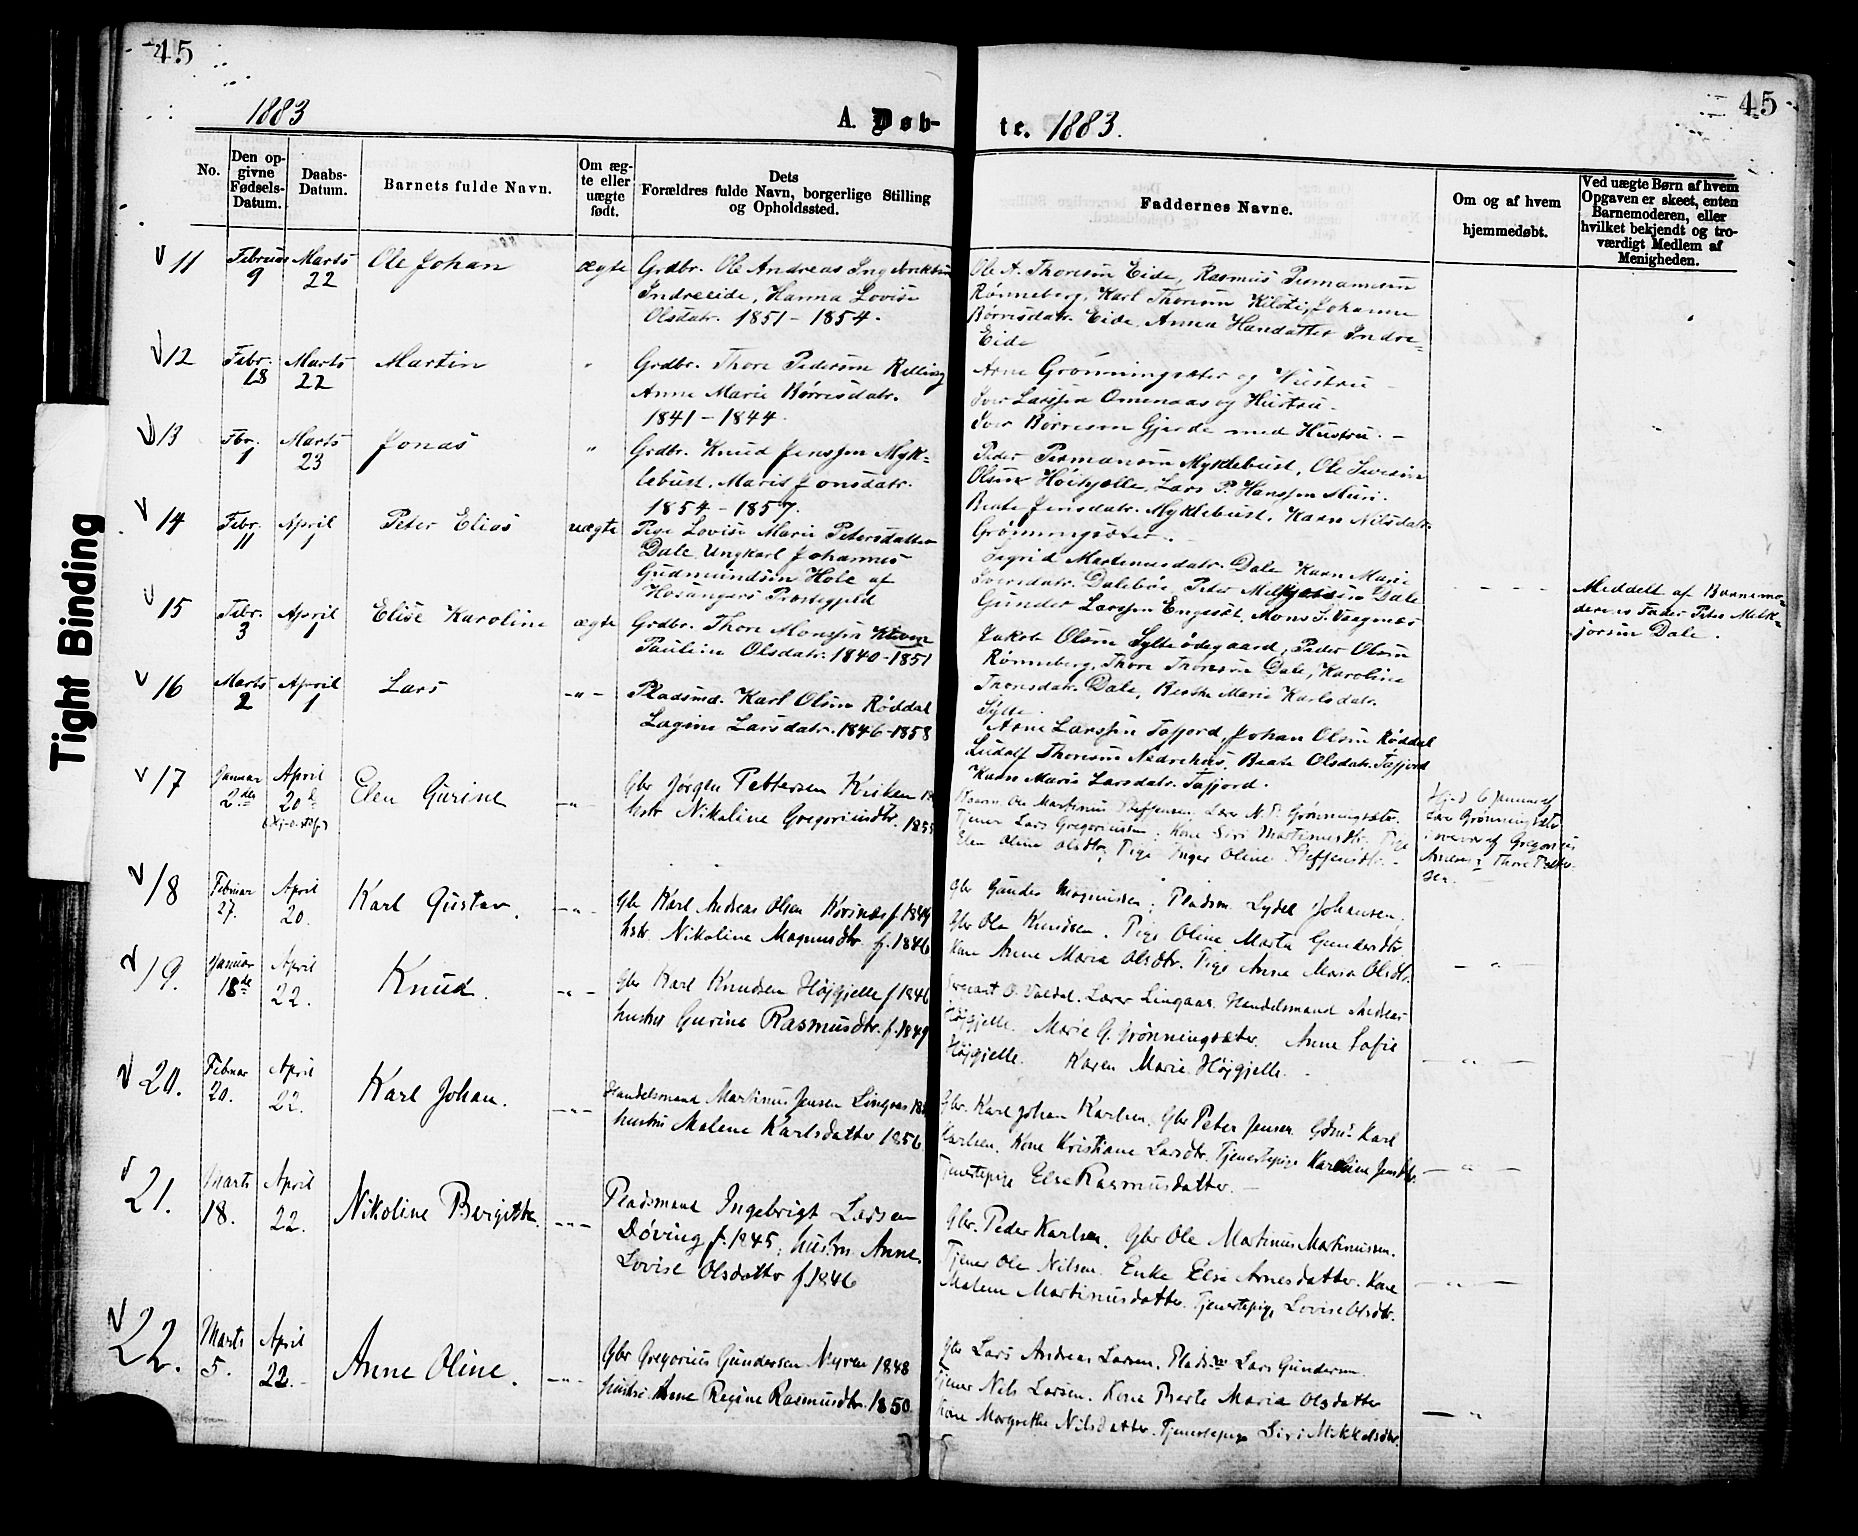 45
45
1883
A. Døb-
te. 1883.
No.
Den op-
givne
Fødsels-
Datum.
Daabs-
Datum.
Barnets fulde Navn.
Om æg-
te eller
uægte
født.
Dets
Forældres fulde Navn, borgerlige Stilling
og Opholdssted.
Faddernes Navne.
Om og af hvem
hjemmedøbt.
Ved uægte Børn af hvem
Opgaven er skeet, enten
Barnemoderen, eller
hvilket bekjendt og tro-
værdigt Medlem af
Menigheden.
11 Februar 9 Marts 22 Ole Johan ægte
Grdbr. Ole Andreas
Indreeide, Hanna Lovise
Olsdatr. 1851 - 1854.
Ole A. Thoresen Eide, Rasmus
Rønneberg, Karl Thoresen Kilsti, Johanne
Børresdatr. Eide, Anna Indre-
Eide
12 Febr. 18 Marts 22 Martin "
Grdbr. Thore Pedersen Relling
Anne Marie Børresdatr.
1841 - 1844.
Arne Grønningsæter og Hustru -
Iver Larssen Omenaas og Hustru -
Iver Børresen Gjerde med Hustru. -
13 Fbr. 1 Marts 23 Jonas "
Grdbr. Knud Jenssen Myk-
lebust, Marit Jonsdatr.
1854 - 1857.
Peder Myklebust, Ole
Olsen Høisjelle, Lars P. Hanssen Muri.
Beate Jensdatr. Myklebust, Karn Nilsdatr.
Grønningsæter. -
14 Febr. 11 April 1 Peter Elias uægte
Pige Lovise Marie Petersdatter
Dale, Ungkarl Johannes
Gudmundsen Hole af
Hosangers Prestegjeld
Ingrid Martinusdatr. Dale Karn Marie
Iversdatr. Dalebøe, Peter Melkjorsen Dale
Gunder Larssen Engeset, Mons S.
- - -
Meddelt af Barnemo-
derens Fader Peter Melk-
jorsen Dale.
15 Febr. 3 April 1 Elise Karoline ægte
Grdbr. Thore Monssen
Pauline Olsdatr. 1840-1851
Jakob Olsen Sylteødegaard, Peder Olsen
Rønneberg, Thore Thoresen Dale, Karoline
Thoresdatr. Dale, Berthe Marie Karlsdatr.
Sylte.
16 Marts 2 April 1 Lars - " -
Pladsmd. Karl Olsen Røddal
Larsdatr. 1846-1858
Arne Larssen Tafjord, Johan Olsen Røddal
Ludolf Thoresen Nedrehus, Beate Olsdatr. Tafjord
Karn Marie Larsdatr. Tafjord.
17 Januar 2den April 20de Elen Gurine - " -
Gbr Jørgen Pettersen
hstr Nikoline Gregoriusdtr.
Ole Martinus Steffensen, Lærer N. P. Grønningsæter.
Tjener Lars Gregoriussen; Kone Siri Martinusdtr. Pige
Elen Oline Olsdtr; Pige Inger Oline Steffensdtr. -
6 Januar af
Grønningsæter
Gregorius
Thore Petter-
sen.
18 Februar 27. April 20. Karl Gustav. - " -
Gbr Karl Andreas Olsen f. 1849
hstr. Nikoline Magnusdtr. f. 1846
Gbr Gunder Magnussen; Pladsm. Sydel Johansen.
Gbr Ole Knudsen. Pige Oline Marta Gundersdtr.
Kone Anne Maria Olsdtr. Pige Anne Maria Olsdtr.
- " -
19. Januar 18de April 22. Knud. - " -
Gbr Karl Knudsen Højgjelle f 1846
hustru Gurine Rasmusdtr. f. 1849
O. Valdal. Lærer Lingaas. Handelsmand Andreas
Højgjelle. Marie G. Grønningsæter. Anne Sofie
Højgjelle. Karen Marie Højgjelle. -
- " -
20. Februar 20. April 22. Karl Johan. - " -
Handelsmand Martinus Jensen Lingaas
hustru Malene Karlsdatter 1856
Gbr. Karl Johan Karlsen. Gbr Peter Jensen. Karl
Karlsen. Kone Kristiane Larsdtr. Tjenestepige Karoline Jensdtr.
Tjenestepige Else Rasmusdatter. -
- " -
21. Marts 18. April 22. Nikoline Bergitte. - " -
Pladsmand Ingebrigt Larsen
Døving f. 1845; hustru Anne
Lovise Olsdatter f. 1846
Gbr. Peder Karlsen. Gbr Ole Martinus Martinussen.
Tjener Ole Nilsen. Enke Else Arnesdatter. Kone
Malene Martinusdatter. Tjenestepige Lovise Olsdtr.
- " -
22. Marts 5. April 22. Anne Oline. - " -
Gbr Gregorius Gundersen Myren 1848
hustru Anne Regine Rasmusdtr. 1850
Gbr Lars Andreas Larsen. Pladsm Lars Gundersen.
Tjener Nils Larsen. Kone Berte Maria Olsdatter
Kone Margrethe Nilsdatter. Tjenestepige Siri Mikkelsdtr.
- " -
Tight Binding